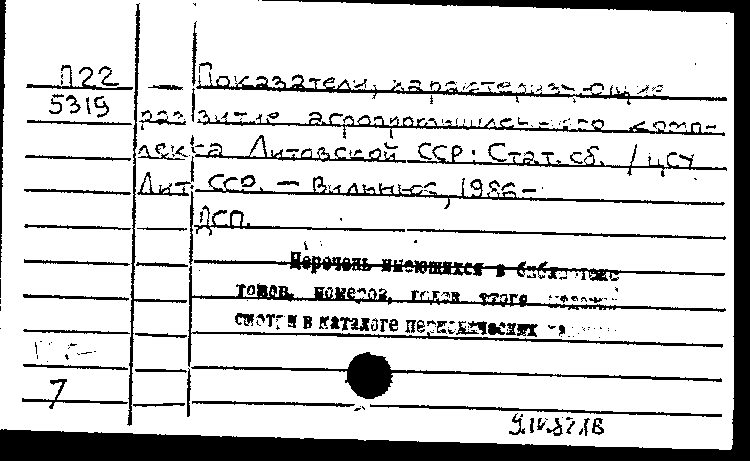 П22
5319
Показатели, характеризующие
развитие агропромышленного комп-
лекса Литовской ССР: Стат. сб. / ЦСУ
Лит ССР. — Вильнюс, 1986-
ДСП.
Перечень имеющихся в библиотеке
томов, номеров, годов этого
смотри в каталоге периодических
7